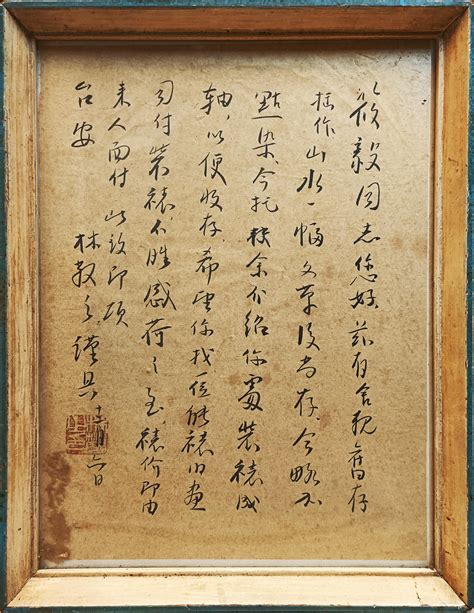 筱毅同志您好。兹有舍亲旧存
拙作山水一幅文革后尚存,今略加
点染。今托扶余介绍你处装裱成
轴,以便收存,希望你找一位能裱旧画
同付装裱,不胜感荷之至,裱价即由
来人面付 此致即颂
台安
林散之谨具 十一月六日